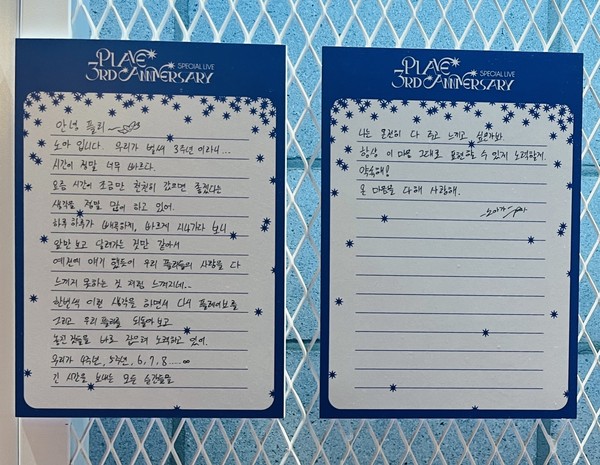 PLAVE SPECIAL LIVE
3RD ANNIVERSARY
안녕 플리
노아 입니다. 우리가 벌써 3주년 이라니...
시간이 정말 너무 빠르다.
요즘 시간이 조금만 천천히 갔으면 좋겠다는
생각을 정말 많이 하고 있어.
하루하루가 빼곡하게, 빠르게 지나가다 보니
앞만 보고 달려가는 것만 같아서
예전에 얘기 했듯이 우리 플리들의 사랑을 다
느끼지 못하는 것 처럼 느껴지네..
한번씩 이런 생각을 하면서 다시 플레이브를
그리고 우리 플리를 되돌아보고
놓고 있는 것들을 바로 잡으려 노력하고 있어.
우리가 4주년, 5주년, 6, 7, 8 ..... ∞
긴 시간을 보내는 모든 순간들을
PLAVE SPECIAL LIVE
3RD ANNIVERSARY
나는 온전히 다 알고 느끼고 싶은가봐
항상 이 마음 그대로 표현할 수 있게 노력할게.
약속해!
온 마음을 다해 사랑해.
노아가